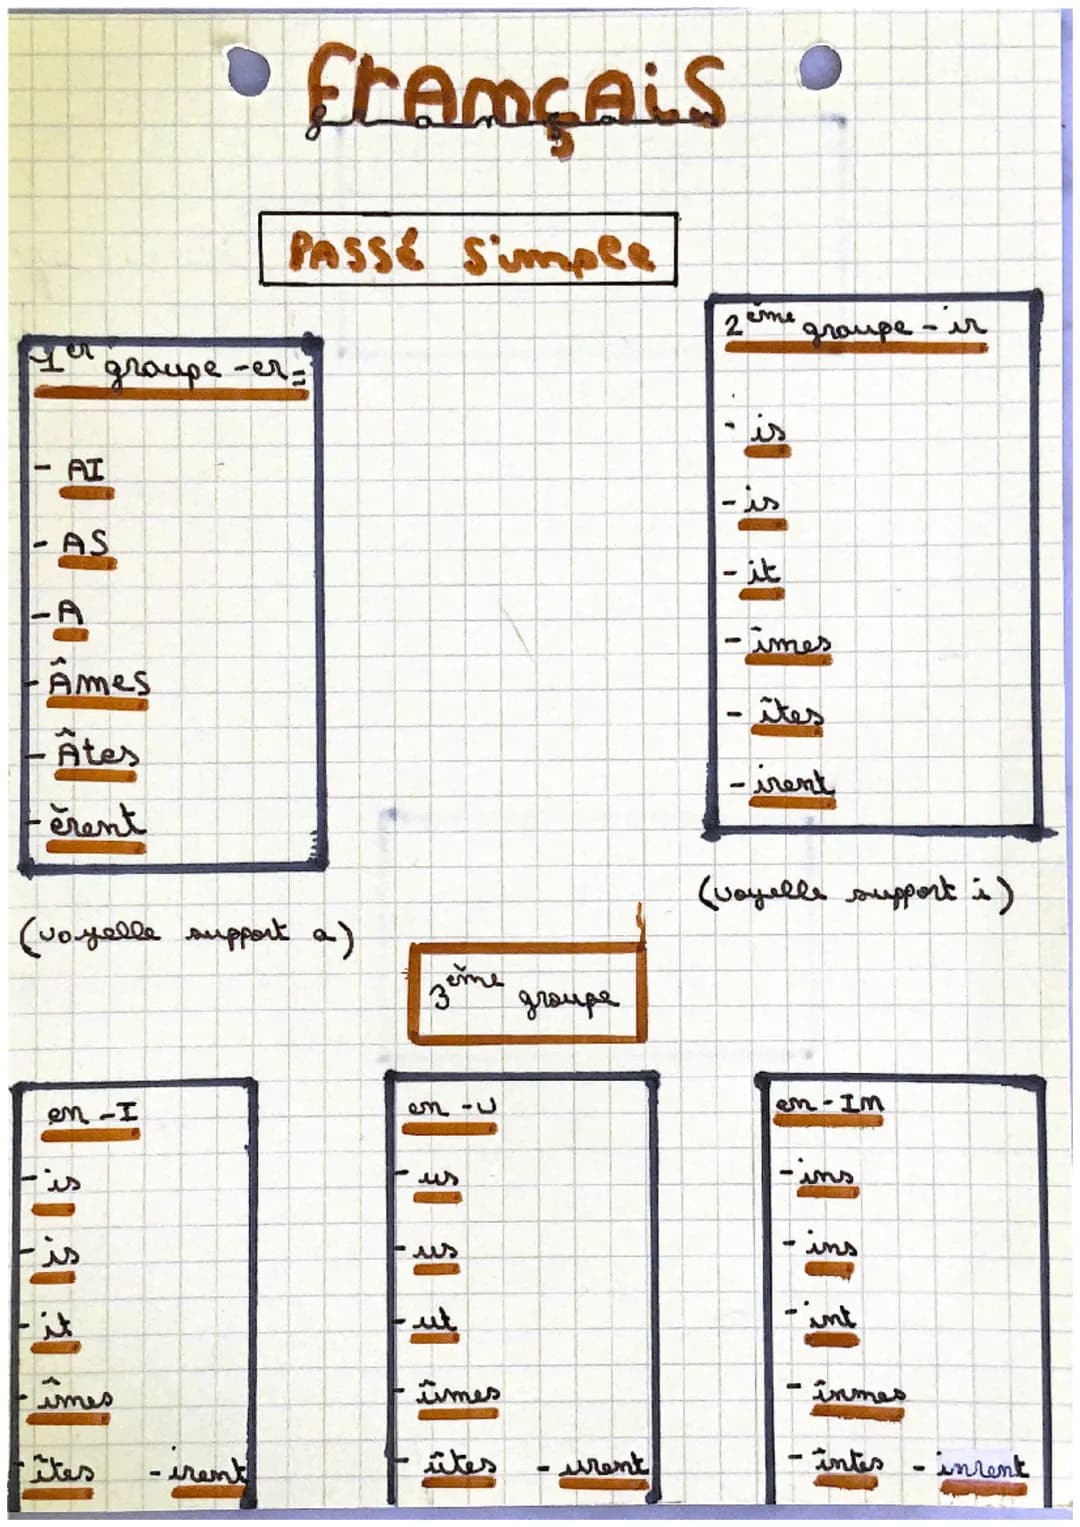 Français
français
PASSÉ Simple
1er groupe -er =
- AI
- AS
- A
- Âmes
- Âtes
- èrent
(voyelle support a)
2ème groupe - ir
- is
- is
- it
- îmes
- îtes
- irent
(voyelle support i)
3ème groupe
en -I
- is
- is
- it
- îmes
- îtes - irent
en -U
- us
- us
- ut
- ûmes
- ûtes - urent
en - In
- ins
- ins
- int
- înmes
- întes - inrent